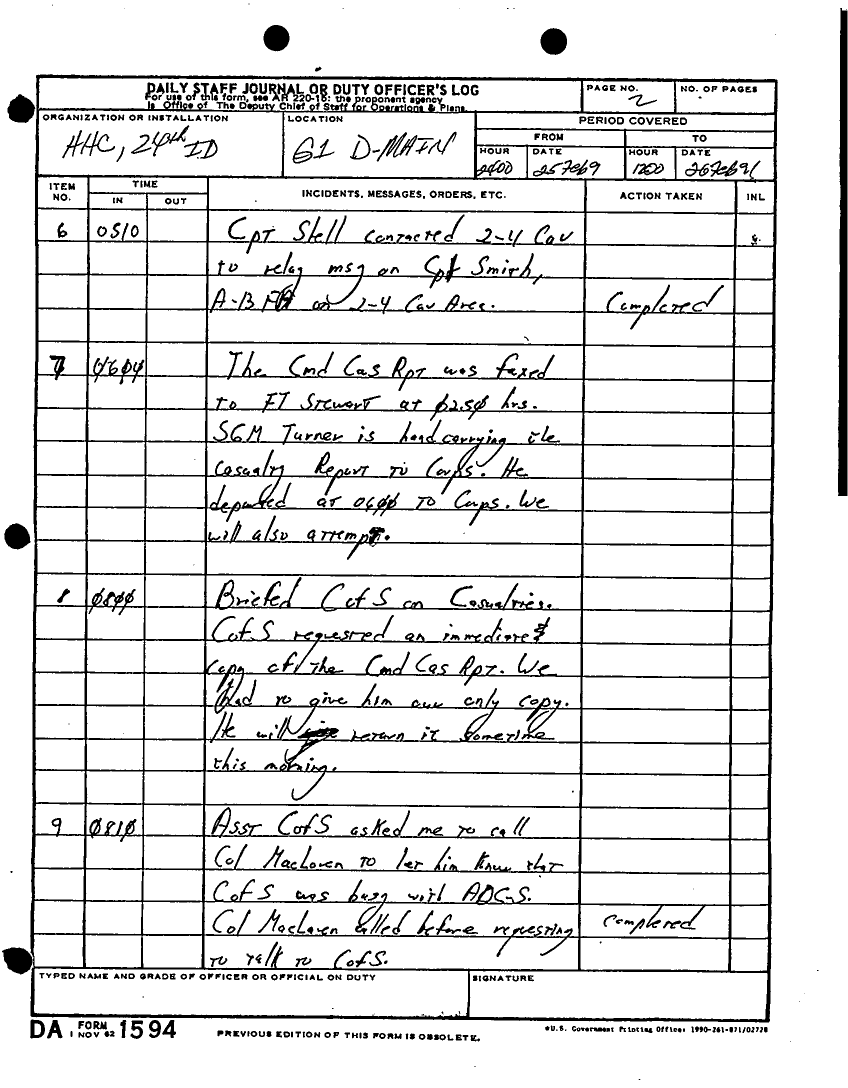 DAILY STAFF JOURNAL OR DUTY OFFICER'S LOG
For use of this form, see AR 220-15; the proponent agency
is Office of The Deputy Chief of Staff for Operations & Plans.
PAGE NO.
2
NO. OF PAGES
ORGANIZATION OR INSTALLATION
AHC, 24th ID
LOCATION
G1 D-MAIN
PERIOD COVERED
FROM
TO
HOUR
2400
DATE
25Feb9
HOUR
1200
DATE
26Feb91
ITEM NO.
TIME
IN
OUT
INCIDENTS, MESSAGES, ORDERS, ETC.
ACTION TAKEN
INL
6 0510 Cpt Stell contacted 2-4 Cav
to relay msg on Cpt Smith,
A-13 FA on 2-4 Cav Area. Completed
7 0604 The Cmd Cas Rpt was faxed
to FT Stewart at 0250 hrs.
SGM Turner is handcarrying the
Casualty Report to Corps. He
departed at 0600 to Corps. We
will also attempt.
8 0800 Briefed CofS on Casualties.
CofS requested an immediate
copy of the Cmd Cas Rpt. We
had to give him our only copy.
He will return it sometime
this morning.
9 0810 Asst CofS asked me to call
Col to let him know that
CofS was busy with ADC-S.
Col called before requesting completed
to talk to CofS.
TYPED NAME AND GRADE OF OFFICER OR OFFICIAL ON DUTY
SIGNATURE
DA FORM 1 NOV 62 1594
PREVIOUS EDITION OF THIS FORM IS OBSOLETE.
*U.S. Government Printing Office: 1990-261-871/02728